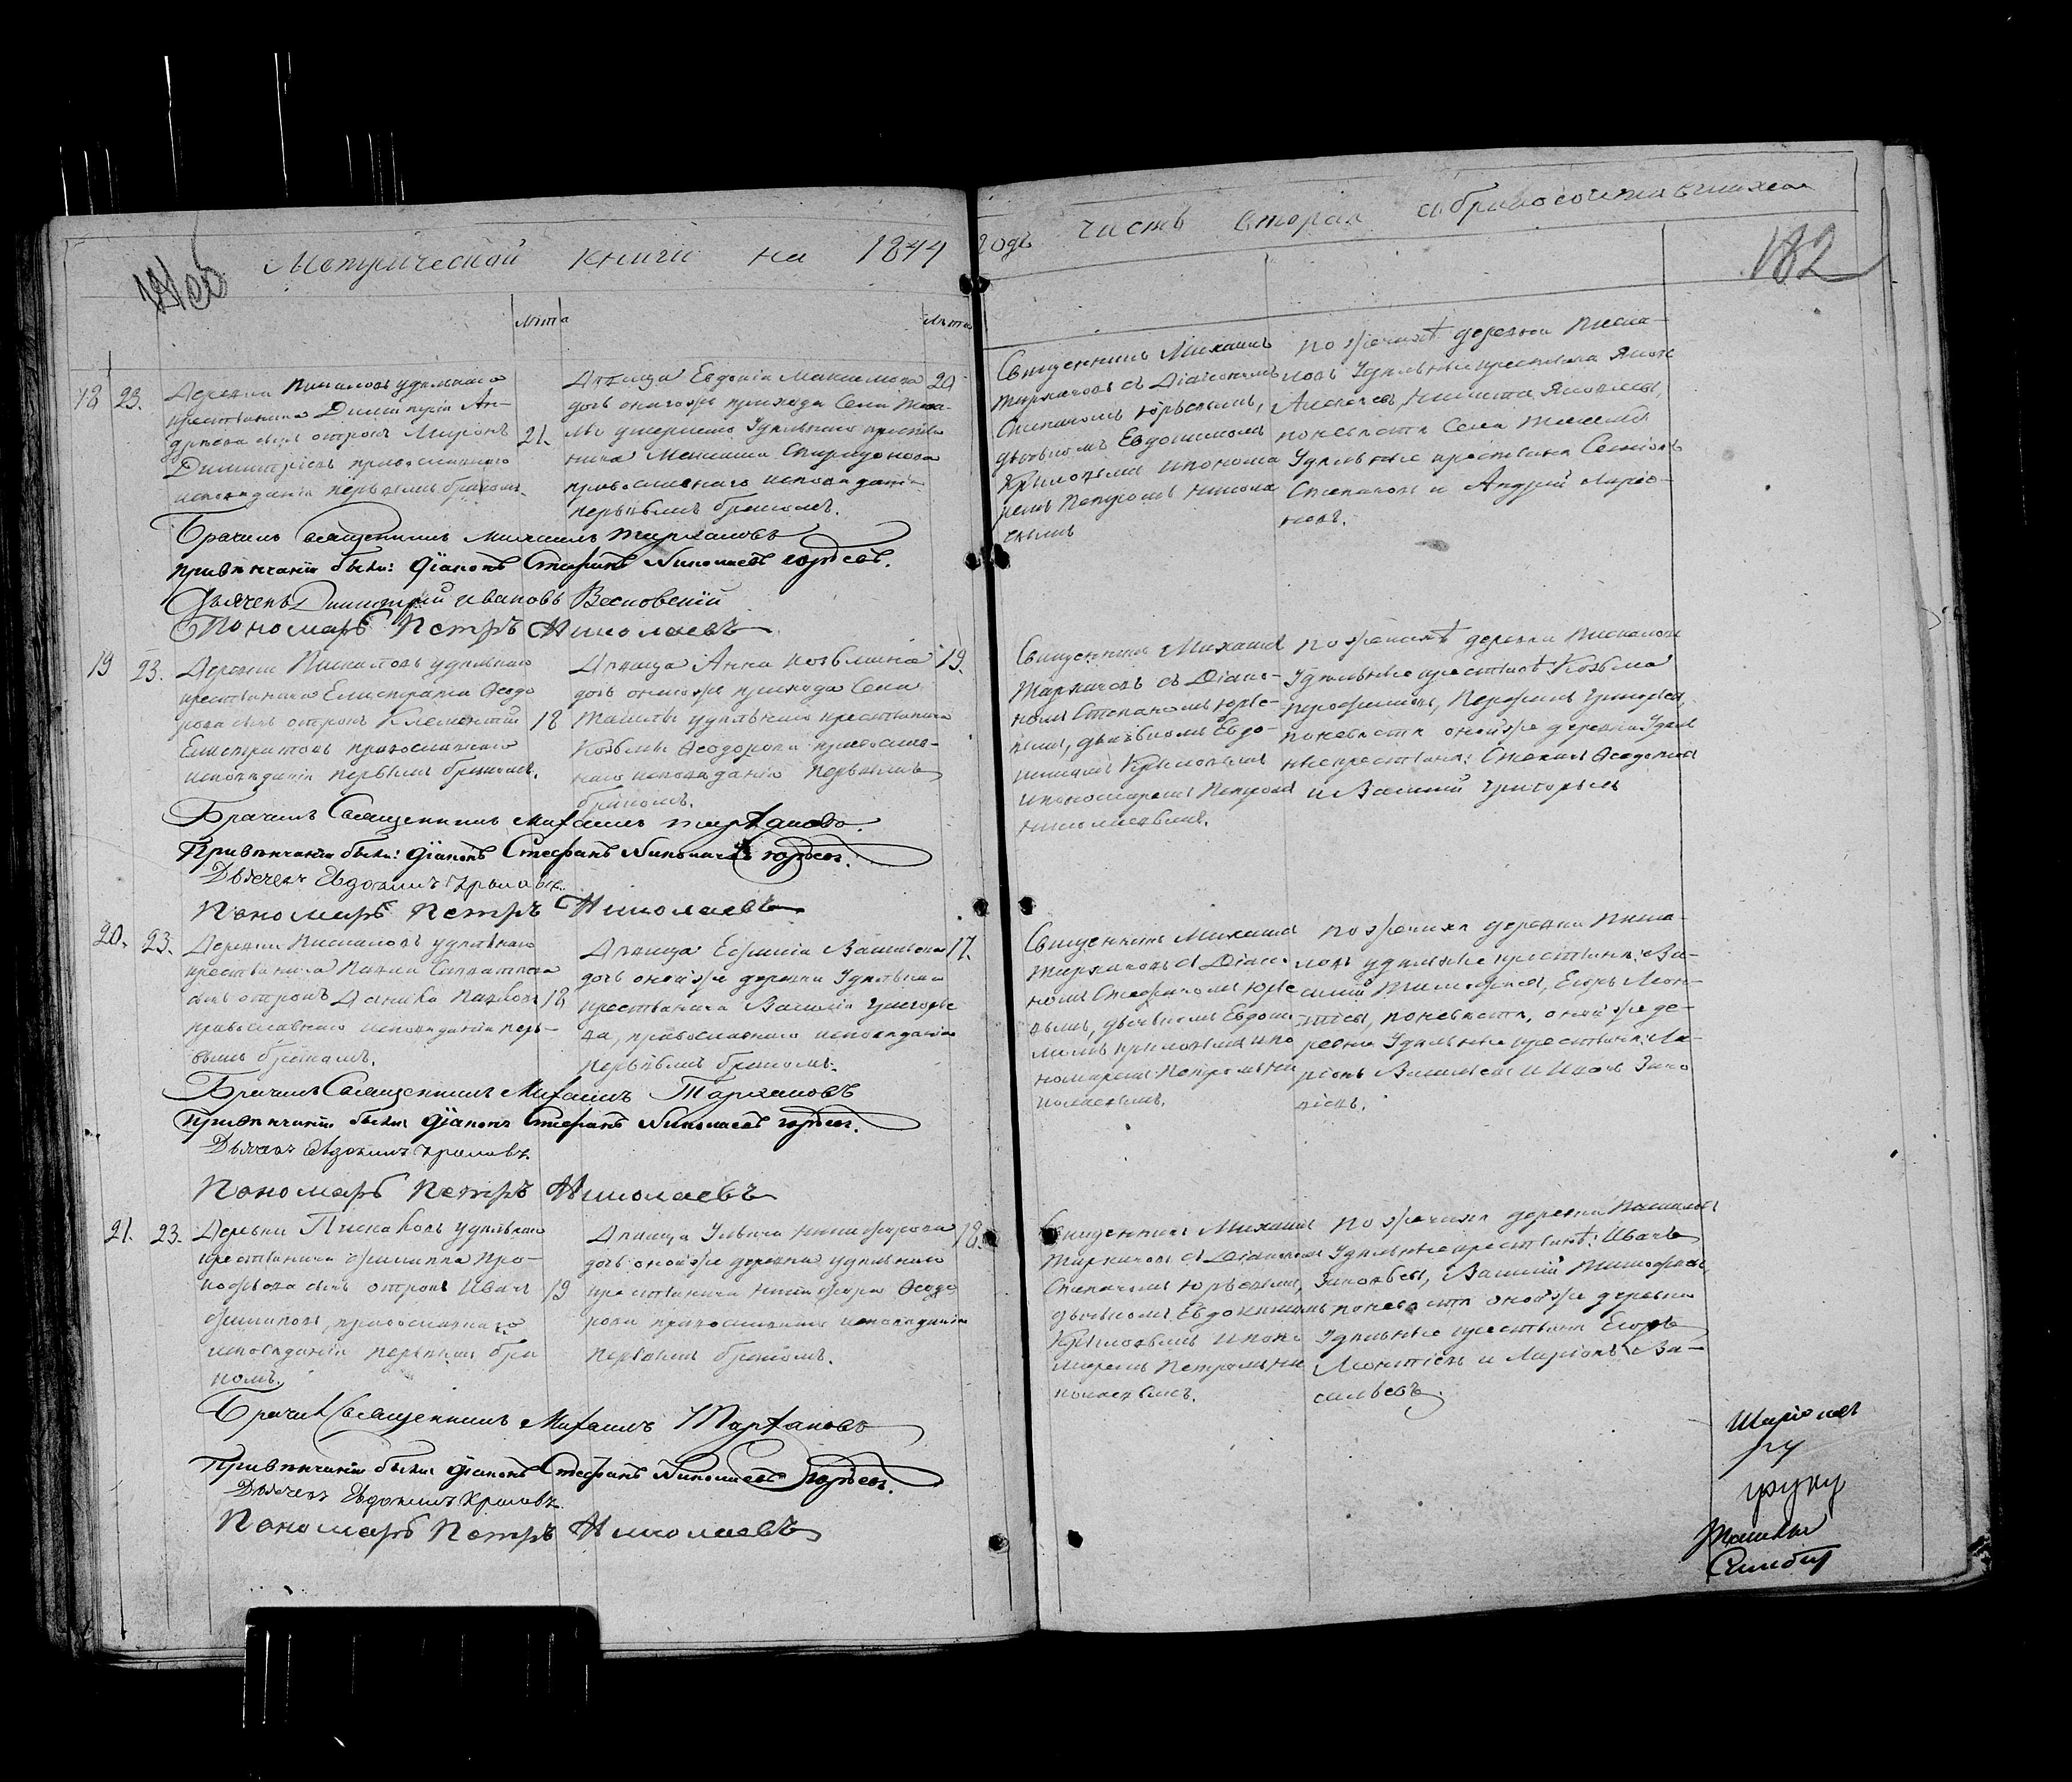 Метрической книги на 1844
годъ часть вторая о бракосочетавшихся
182
лѣта
лѣта
18 23.
Деревни Пискаловъ удѣльнаго
крестьянина Димитрія Ан-
дреева сынъ отрокъ Миронъ 21.
Димитріевъ православнаго
исповѣданія первымъ бракомъ.
Дѣвица Евдокія Максимова 20
дочь онагоже прихода Села
умершаго Удѣльнаго крестья
нина Максима Спиридонова
православнаго исповѣданія
первымъ бракомъ.
Священникъ Михаилъ
Тархановъ съ Діакономъ
Стефаномъ Юрьевымъ,
дьячкомъ Евдокимомъ
Крыловымъ и понома
ремъ Петромъ Никола
евымъ
По женихѣ деревни Писка-
ловъ Удѣльные крестьяна
Алексѣевъ, Никита Яковлевъ,
по невѣстѣ Села
Удѣльные крестьяна Семіонъ
Степановъ и Андрей Ларіо-
новъ.
Бракъ Священникъ Михаилъ Тархановъ
При вѣнчаніи были: Діаконъ Стефанъ Николаевъ Юрьевъ.
Дьячекъ Димитрій Ивановъ Весновскій
Пономарь Петръ Николаевъ
19 23.
Деревни Пискаловъ удѣльнаго
крестьянина Елистрата Ѳеодо
рова сынъ отрокъ Климентій 18
Елистратовъ православнаго
исповѣданія первымъ бракомъ.
Дѣвица Анна Козьмина 19.
дочь онагоже прихода Села
Ташлы удѣльнаго крестьянина
Козьмы Ѳеодорова православ-
наго исповѣданія первымъ
бракомъ.
Священникъ Михаилъ
Тархановъ съ Діако-
номъ Стефаномъ Юрье-
вымъ, дьячкомъ Евдо-
кимомъ Крыловымъ
и пономаремъ Петромъ
Николаевымъ.
По женихѣ деревни Пискаловъ
Удѣльные крестьянѣ Козьма
Григорьевъ,
по невѣстѣ онойже деревни Удѣль
ные крестьяна: Степанъ Ѳеодоровъ
и Василій Григорьевъ
Бракъ Священникъ Михаилъ Тархановъ.
При вѣнчаніи были: Діаконъ Стефанъ Николаевъ Юрьевъ.
Дьячекъ Евдокимъ Крыловъ.
Пономарь Петръ Николаевъ
20. 23.
Деревни Пискаловъ удѣльнаго
крестьянина Павла
сынъ отрокъ Данила Павловъ 18
православнаго исповѣданія пер-
вымъ бракомъ.
Дѣвица Васильева 17.
дочь онойже деревни Удѣльнаго
крестьянина Василія Григорье
ва, православнаго исповѣданія
первымъ бракомъ.
Священникъ Михаилъ
Тархановъ съ Діако-
номъ Стефаномъ Юрье
вымъ, дьячкомъ Евдоки
момъ Крыловымъ и по
номаремъ Петромъ Ни
колаевымъ.
По женихѣ деревни Писка-
ловъ удѣльные крестьяна: Ва-
силій Тимофѣевъ, Егоръ Леон-
тіевъ, по невѣстѣ, онойже де-
ревни Удѣльные крестьяна: Ла-
ріонъ Васильевъ и Иванъ Зино
віевъ.
Бракъ Священникъ Михаилъ Тархановъ
При вѣнчаніи были Діаконъ Стефанъ Николаевъ Юрьевъ.
Дьячекъ Евдокимъ Крыловъ.
Пономарь Петръ Николаевъ
21. 23.
Деревни Пискаловъ удѣльнаго
крестьянина Филиппа Про-
кофьева сынъ отрокъ Иванъ 19
Филиповъ, православнаго
исповѣданія первымъ бра
комъ.
Дѣвица Ульяна Никифорова 18.
дочь онойже деревни удѣльнаго
крестьянина Никифора Ѳеодо
рова православнаго исповѣданія
первымъ бракомъ.
Священникъ Михаилъ
Тархановъ съ Діакономъ
Стефаномъ Юрьевымъ,
дьячкомъ Евдокимомъ
Крыловымъ и поно
маремъ Петромъ Ни
колаевымъ.
По женихѣ деревни Пискаловъ
Удѣльные крестьянѣ: Иванъ
Зиновьевъ, Василій Тимофѣевъ,
по невѣстѣ онойже деревни
Удѣльные крестьяна Егоръ
Леонтіевъ и Ларіонъ Ва-
сильевъ.
Бракъ Священникъ Михаилъ Тархановъ
При вѣнчаніи были Діаконъ Стефанъ Николаевъ Юрьевъ.
Дьячекъ Евдокимъ Крыловъ.
Пономарь Петръ Николаевъ
руку